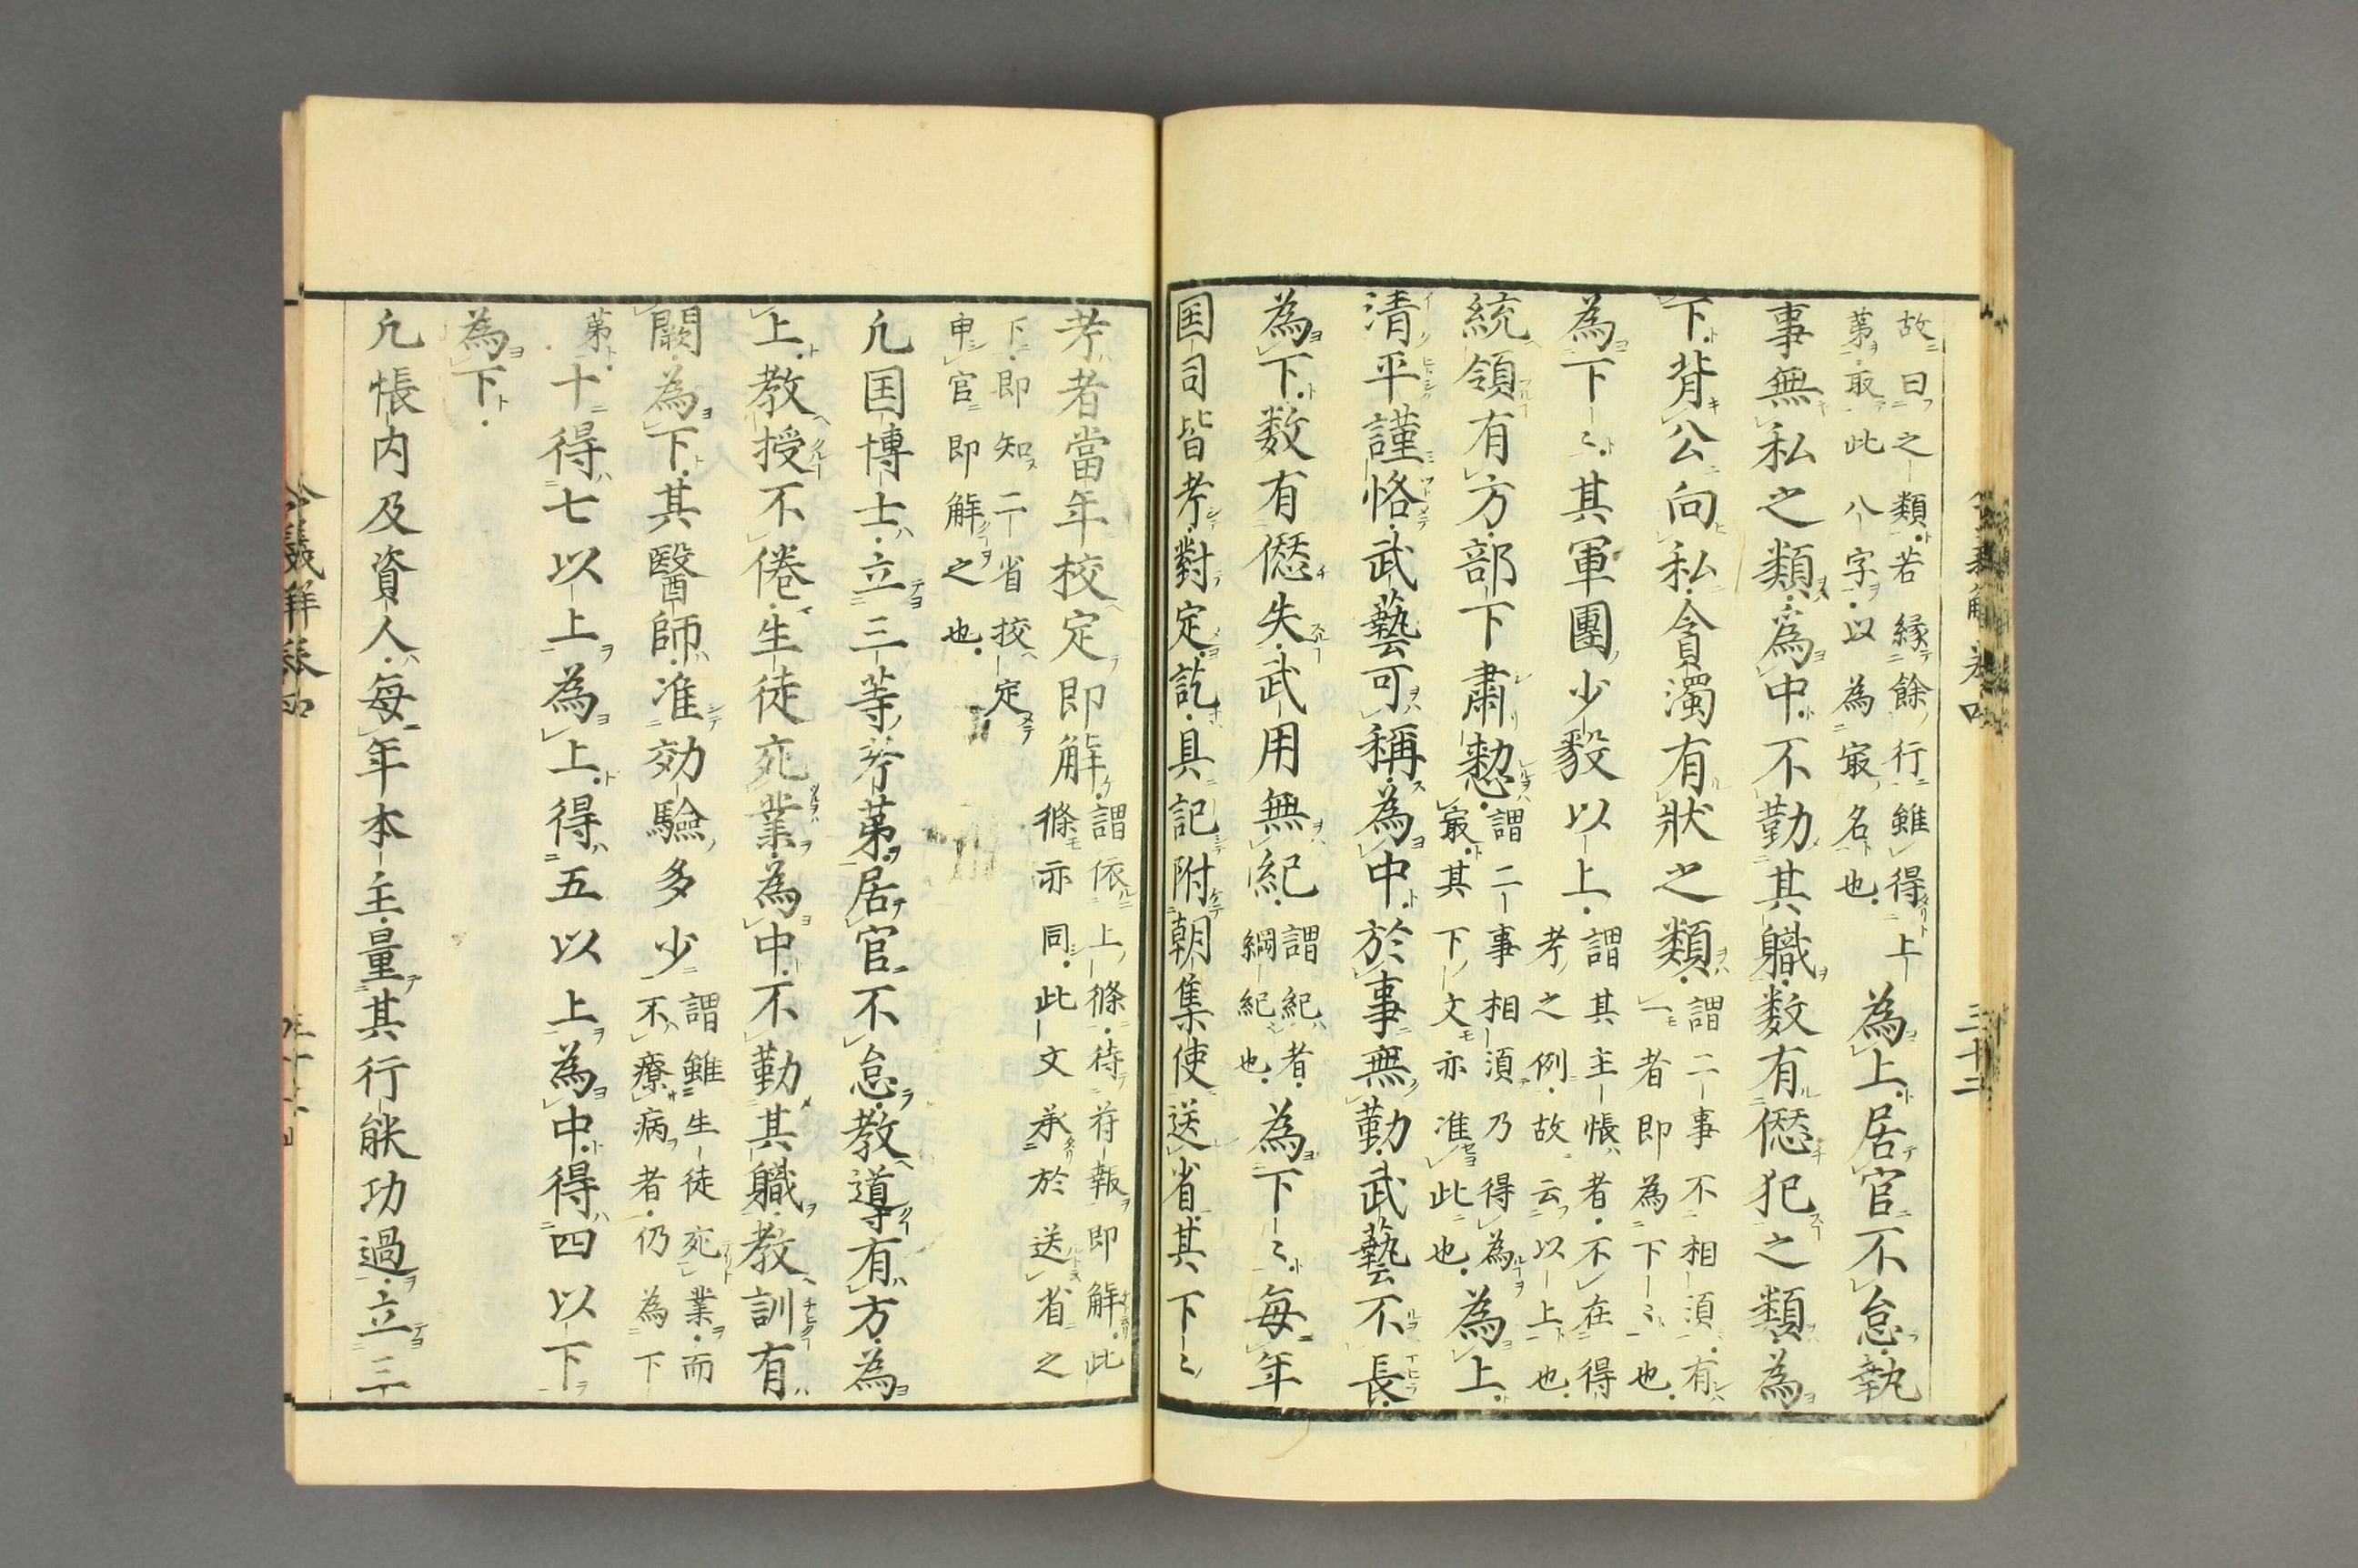 令義解巻四
三十二
故曰之類若縁餘行雖得上
第取此八字以為最名也
為上居官不怠執
事無私之類為中不勤其職数有愆犯之類為
下背公向私貪濁有狀之類
謂二事不相須有
一者即為下〻也
為下〻其軍團少毅以上
謂其主帳者不在得
考之例故云以上也
統領有方部下肅愸
謂二事相須乃得為上
最其下文亦准此也
為上
清平謹恪武藝可稱為中於事無勤武藝不長
為下数有愆失武用無紀
謂紀者
綱紀也
為下〻每年
国司皆考對定訖具記附朝集使送省其下〻
考者當年校定即解
謂依上條待符報即解此
條亦同此文承於送省之
下即知二省挍定
申官即解之也
凡国博士立三等考第居官不怠教導有方為
上教授不倦生徒死業為中不勤其職教訓有
闕為下其醫師准効驗多少
謂雖生徒死業而
不療病者仍為下
第
十得七以上為上得五以上為中得四以下
為下
凡帳内及資人每年本主量其行能功過立三
令義解巻四